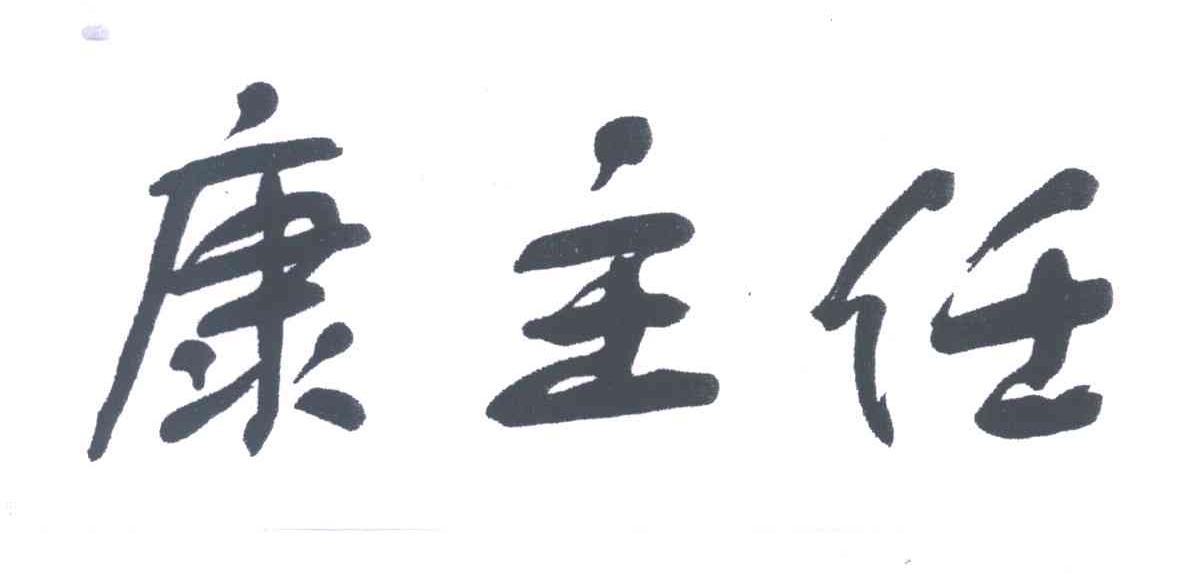 康主任